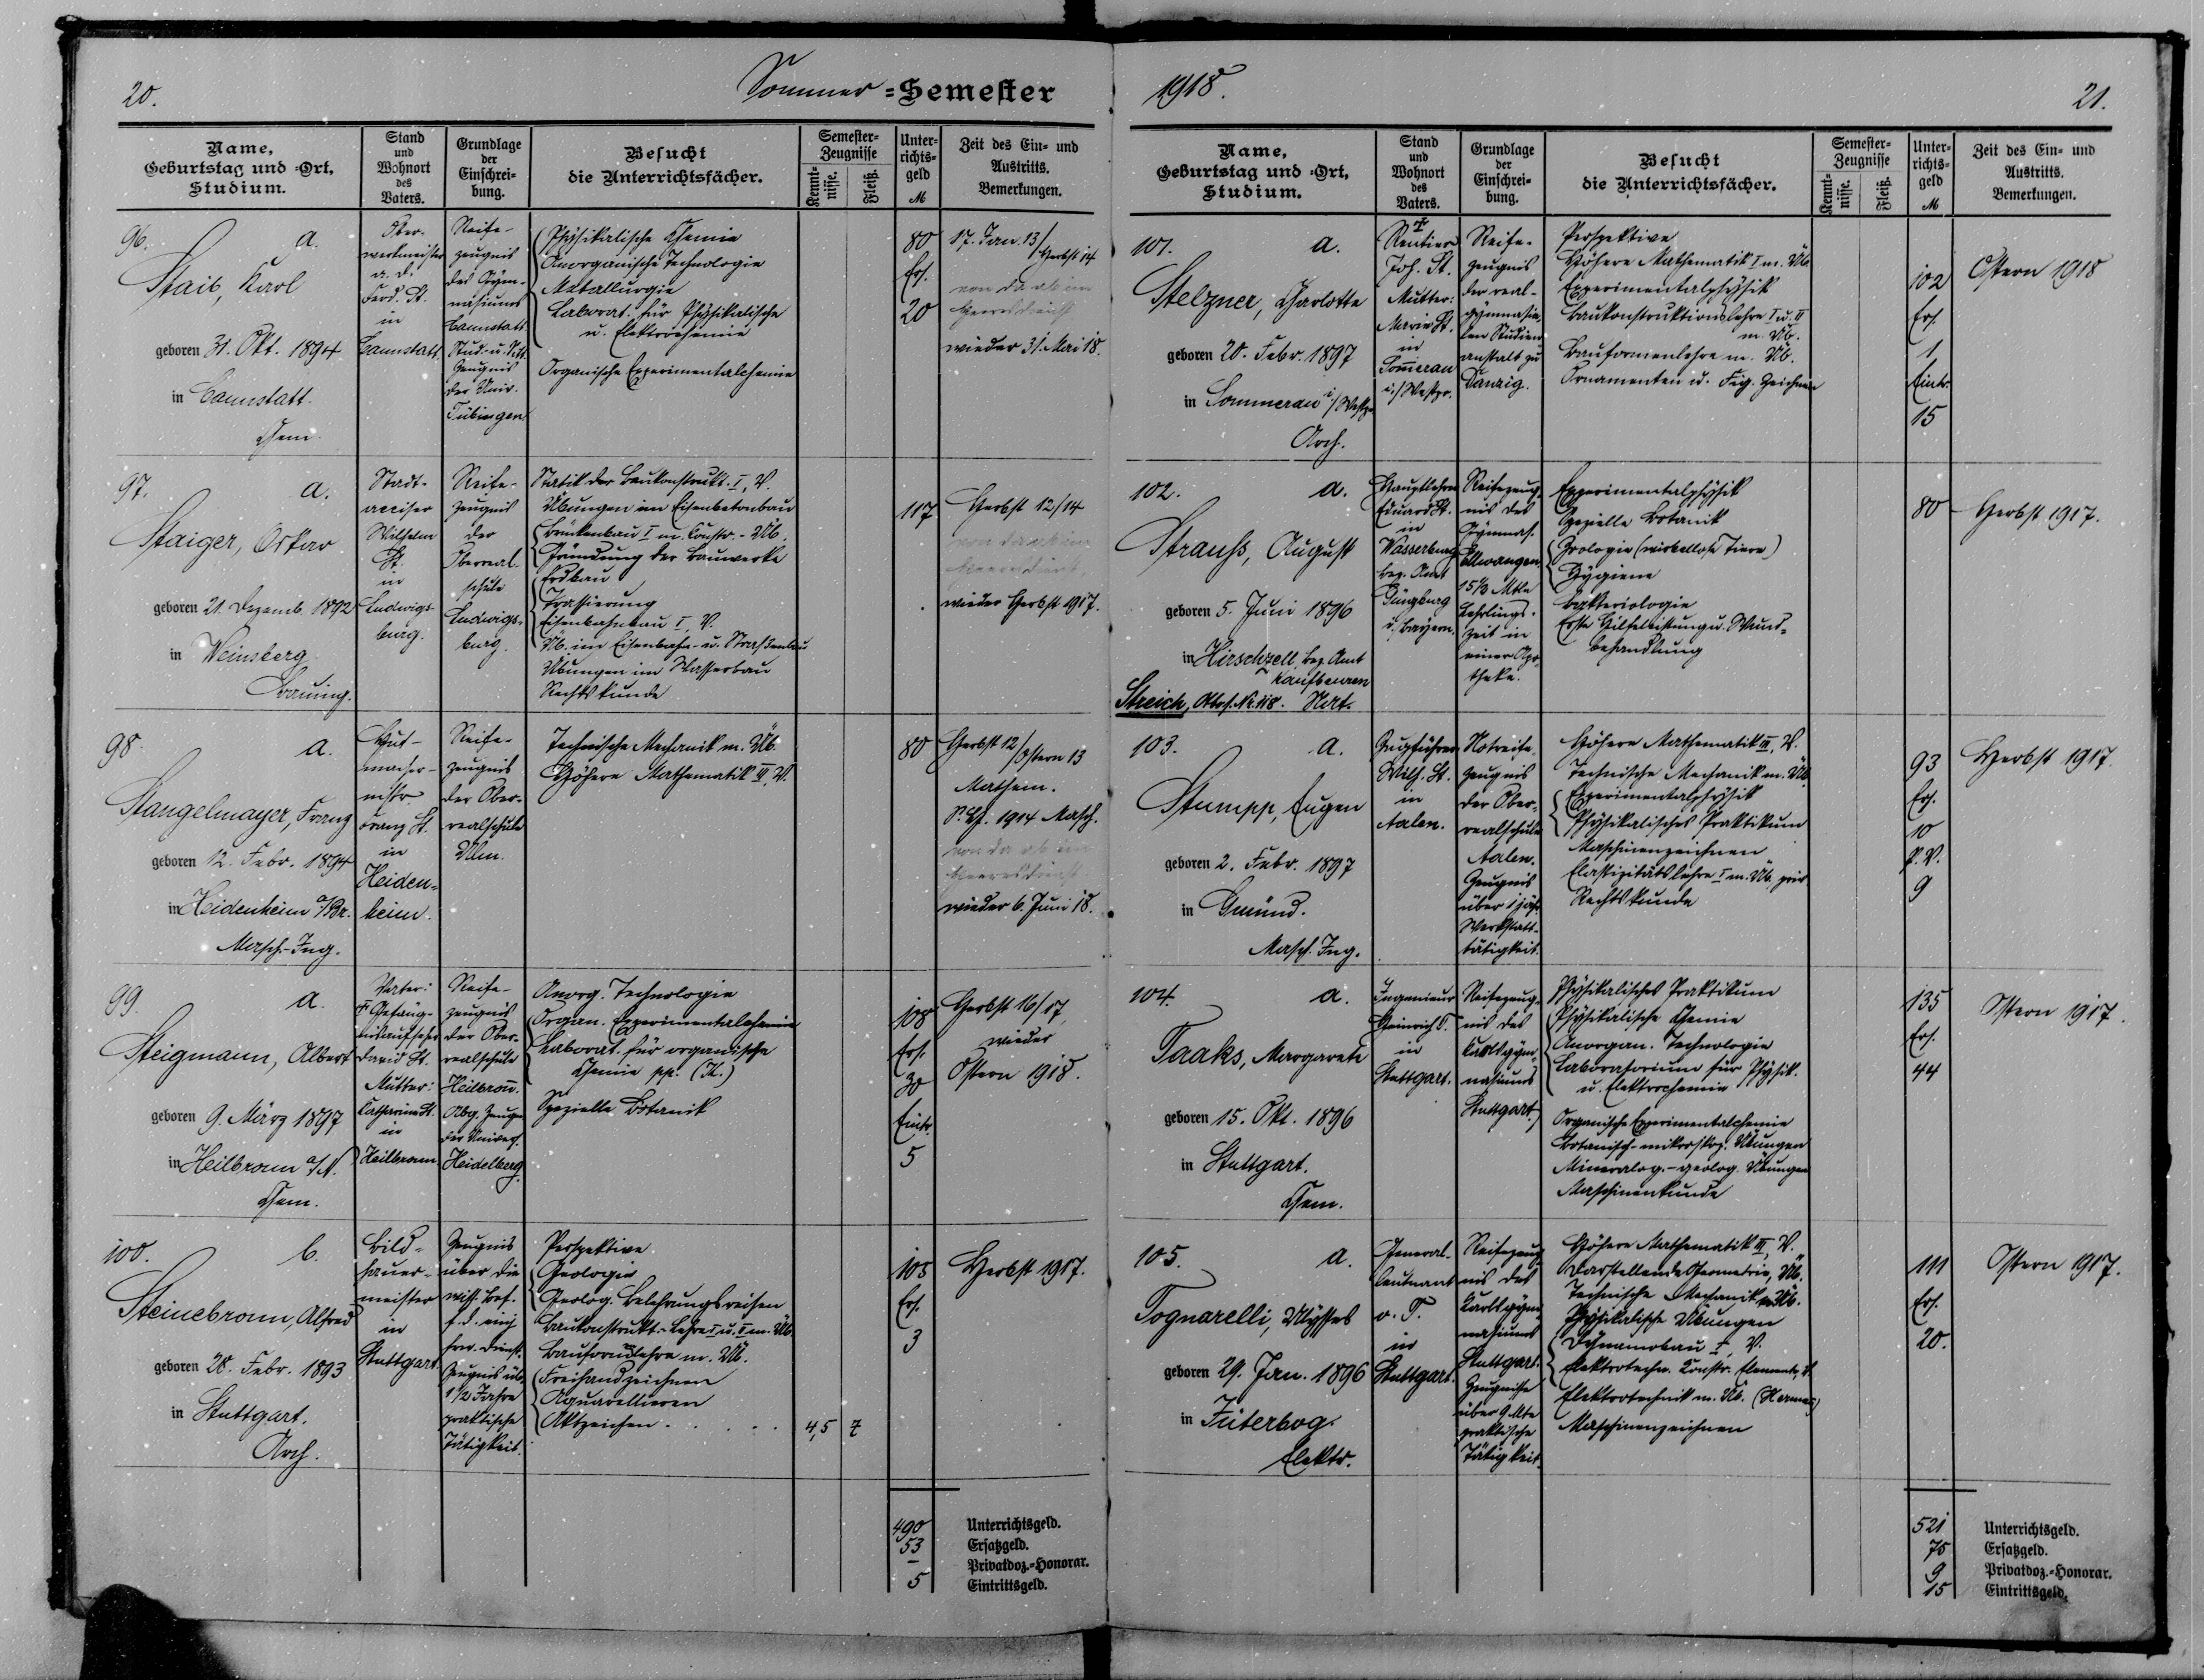 20.
Sommer = Semester
Name,
Geburtstag und =Ort,
Studium.
Stand
und
Wohnort
des
Vaters.
Grundlage
der
Einschrei-
bung.
Besucht
die Unterrichtsfächer.
Semester-
Zeugnisse
Kennt-
nisse.
Fleiß.
Unter-
richts-
geld
M
Zeit des Ein- und
Austritts.
Bemerkungen.
96. a.
Staib, Karl
geboren 31. Okt. 1894
in Cannstatt.
Chem.
Ober-
werkmeister
a. D.
Ferd. St.
in
Cannstatt.
Reife-
zeugnis
des Gym-
nasiums
Cannstatt.
Stud.- u. Sitt.
Zeugnis
der Univ.
Tübingen.
Physikalische Chemie
Anorganische Technologie
Metallurgie
Laborat. für Physikalische
u. Elektrochemie
Organische Experimentalchemie
80
Ers.
20
17. Jan. 13/Herbst 14
von da ab im
Heeresdienst
wieder 31. Mai 18.
97. a.
Staiger, Oskar
geboren 21. Dezemb. 1892
in Weinsberg.
Bauing.
Stadt-
acciser
Wilhelm
St.
in
Ludwigs-
burg.
Reife-
zeugnis
der
Oberreal-
schule
Ludwigs-
burg.
Statik der Baukonstrukt. I, V.
Übungen im Eisenbetonbau
Brückenbau I m. Constr.-Üb.
Gründung der Bauwerke
Erdbau
Trassierung
Eisenbahnbau I, V.
Üb. im Eisenbahn- u. Straßenbau
Übungen im Wasserbau
Rechtskunde
117
Herbst 12/14
von da ab im
Heeresdienst,
wieder Herbst 1917.
98. a.
Stangelmayer, Franz
geboren 12. Febr. 1894
in Heidenheim a/Br.
Masch.-Ing.
Hut-
macher-
mstr.
Franz St.
in
Heiden-
heim.
Reife-
zeugnis
der Ober-
realschule
Ulm.
Technische Mechanik m. Üb.
Höhere Mathematik III, V.
80
Herbst 12/Ostern 13
Mathem.
1914 Masch.
von da ab im
Heeresdienst
wieder 6. Juni 18.
99. a.
Steigmann, Albert
geboren 9. März 1897
in Heilbronn a/N.
Chem.
Vater:
† Gefäng-
nisaufseher
David St.
Mutter:
Katharine St.
in
Heilbronn
Reife-
zeugnis
der Ober-
realschule
Heilbronn.
Abg. Zeugn.
der Univers.
Heidelberg.
Anorg. Technologie
Organ. Experimentalchemie
Laborat. für organische
Chemie pp. (K.)
Spezielle Botanik
108
Ers.
30
Eintr.
5
Herbst 16/17,
wieder
Ostern 1918.
100. b.
Steinebronn, Alfred
geboren 28. Febr. 1893
in Stuttgart.
Arch.
Bild-
hauer-
meister
in
Stuttgart.
Zeugnis
über die
wiss. Bef.
f. d. einj.
frw. Dienst.
Zeugnis üb.
1 1/2 Jahre
praktische
Tätigkeit.
Perspektive
Geologie
Geolog. Belehrungsreisen
Baukonstrukt.-Lehre I u. II m. Üb.
Bauformenlehre m. Üb.
Freihandzeichnen
Aquarellieren
Aktzeichnen . . . . .
4,5 7
105
Ers.
3
Herbst 1917.
490 Unterrichtsgeld.
53 Ersatzgeld.
– Privatdoz.-Honorar.
5 Eintrittsgeld.
1918.
21.
Name,
Geburtstag und =Ort,
Studium.
Stand
und
Wohnort
des
Vaters.
Grundlage
der
Einschrei-
bung.
Besucht
die Unterrichtsfächer.
Semester-
Zeugnisse
Kennt-
nisse.
Fleiß.
Unter-
richts-
geld
M
Zeit des Ein- und
Austritts.
Bemerkungen.
101. a.
Stelzner, Charlotte
geboren 20. Febr. 1897
in Sommerau i/Westpr.
Arch.
†
Rentier
Joh. St.
Mutter:
Marie St.
in
Sommerau
i/Westpr.
Reife-
zeugnis
der real-
gymnasia-
len Studien-
anstalt zu
Danzig.
Perspektive
Höhere Mathematik I m. Üb.
Experimentalphysik
Baukonstruktionslehre I u. II
m. Üb.
Bauformenlehre m. Üb.
Ornamenten u. Fig. Zeichnen
102
Ers.
1
Eintr.
15
Ostern 1918
102. a.
Strauß, August
geboren 5. Juni 1896
in Hirschzell, Bez. Amt
Kaufbeuren
Nat.
Streich, Abrf. Nr. 118.
Hauptlehrer
Eduard St.
in
Wasserburg
Bez. Amt
Günzburg
i/Bayern.
Reifezeug-
nis des
Gymnas.
Ellwangen
15 1/3 Mte
Lehrlings-
zeit in
einer Apo-
theke.
Experimentalphysik
Spezielle Botanik
Zoologie (wirbellose Tiere)
Hygiene
Bakteriologie
Erste Hilfeleistung u. Wund-
behandlung
80
Herbst 1917.
103. a.
Stumpp, Eugen
geboren 2. Febr. 1897
in Gmünd.
Masch. Ing.
Zugführer
Wilh. St.
in
Aalen.
Notreife-
zeugnis
der Ober-
realschule
Aalen.
Zeugnis
über 1 jähr.
Werkstatt-
tätigkeit.
Höhere Mathematik III, V.
Technische Mechanik m. Üb.
Experimentalphysik
Physikalisches Praktikum
Maschinenzeichnen
Elastizitätslehre I m. Üb. priv.
Rechtskunde
93
Ers.
10
P. V.
9
Herbst 1917.
104. a.
Taaks, Margarete
geboren 15. Okt. 1896
in Stuttgart.
Chem.
Ingenieur
Heinrich T.
in
Stuttgart.
Reifezeug-
nis des
Karlsgym-
nasiums
Stuttgart.
Physikalisches Praktikum
Physikalische Chemie
Anorgan. Technologie
Laboratorium für Physik.
u. Elektrochemie
Organische Experimentalchemie
Botanisch-mikroskop. Übungen
Mineralog.-geolog. Übungen
Maschinenkunde
135
Ers.
44
Ostern 1917.
105. a.
Tognarelli, Ulysses
geboren 29. Jan. 1896
in Jüterbog.
Elektr.
General-
leutnant
v. T.
in
Stuttgart.
Reifezeug-
nis des
Karlsgym-
nasiums
Stuttgart.
Zeugnisse
über 9 Mte
praktische
Tätigkeit.
Höhere Mathematik III, V.
Darstellende Geometrie, Üb.
Technische Mechanik m. Üb.
Physikalische Übungen
Dynamobau I, V.
Elektrotechn. Konstr. Elemente, V.
Elektrotechnik m. Üb. (Herrmann)
Maschinenzeichnen
111
Ers.
20.
Ostern 1917.
521 Unterrichtsgeld.
75 Ersatzgeld.
9 Privatdoz.-Honorar.
15 Eintrittsgeld.